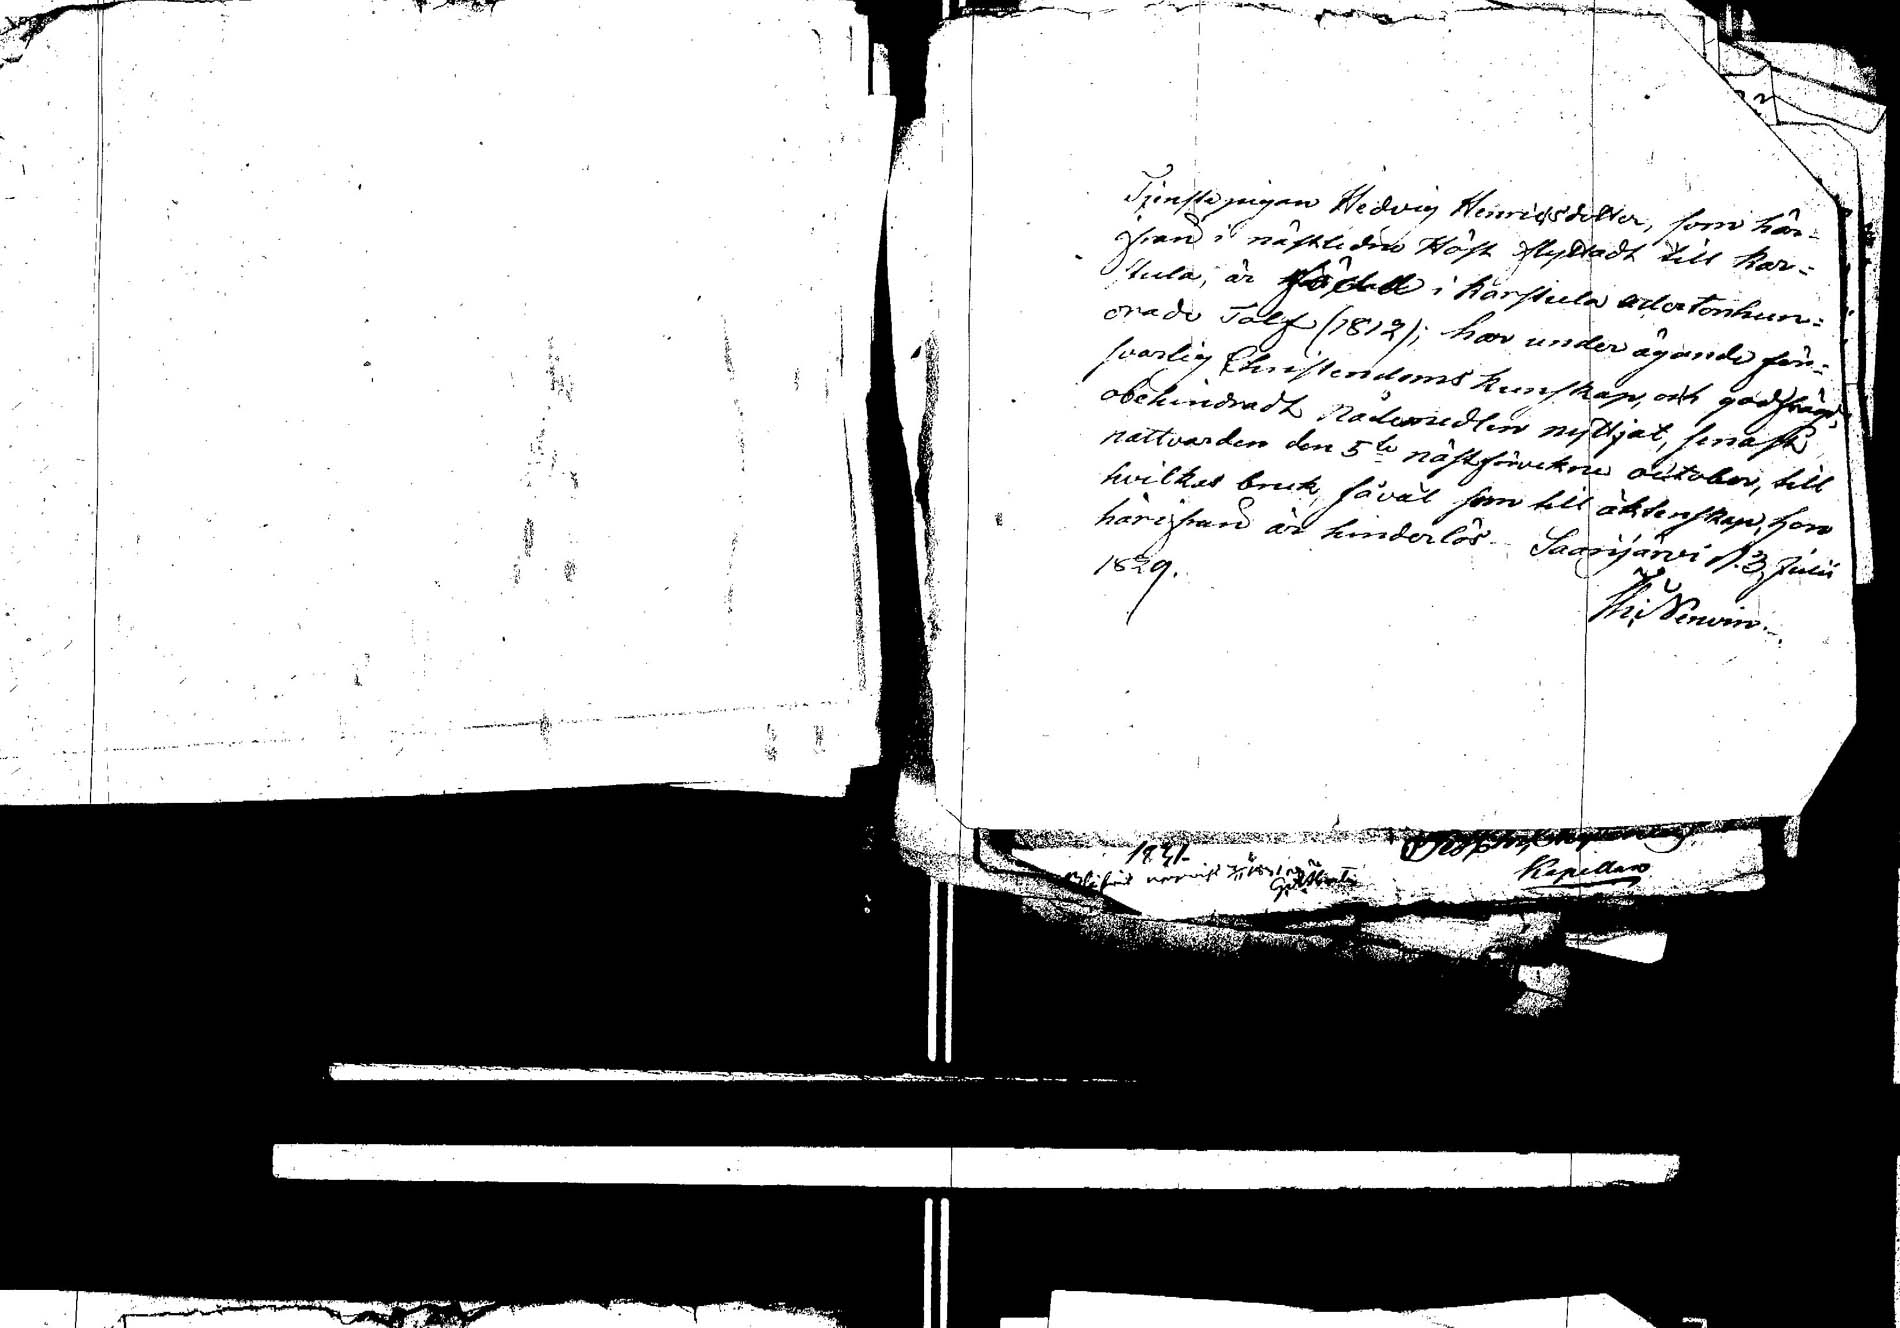 Tjenstepigan Hedvig Henricsdotter, som här=
ifrån i nästledne Höst flyttadt till Kar=
stula, är född i Karstula adertonhun=
drade Tolf (1812); har under ägande för=
svarlig Christendoms kunskap, och god frägd,
obehindradt Nådemedlen nyttjat, senast
nattvarden den 5te nästförvekne october, till
hvilkas bruk, såväl som till äktenskap, hon
härifrån är hinderlös. Saarijärvi d. 3 Julii
1829.
1831
Kapellan